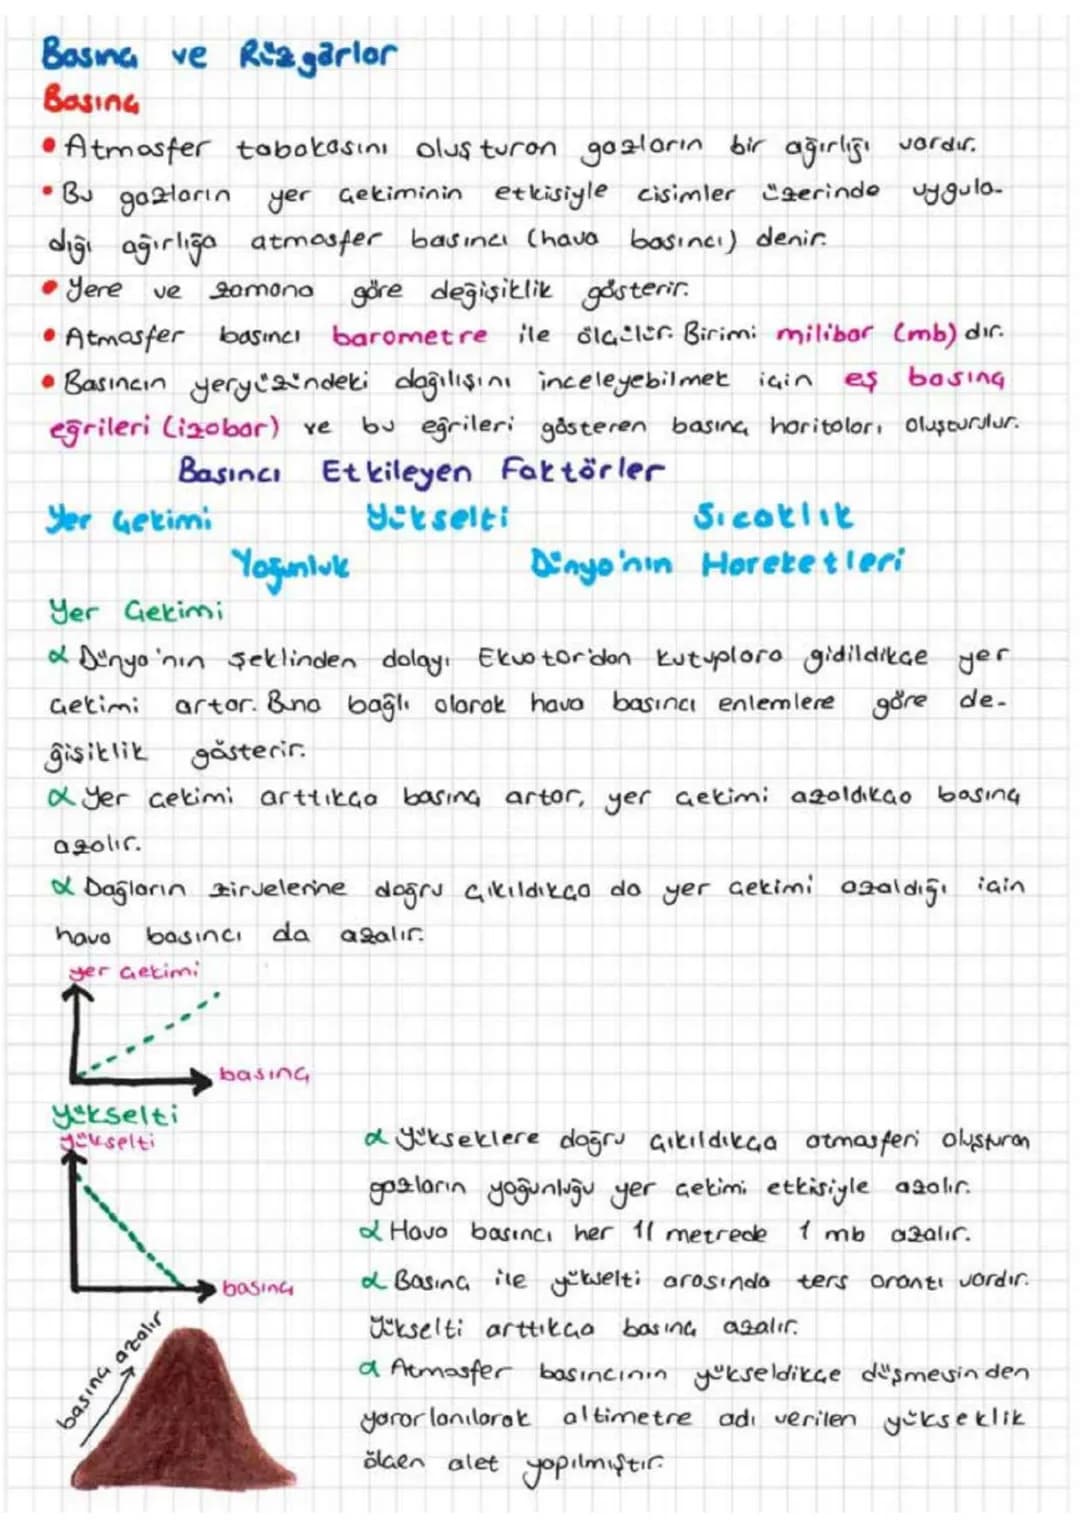 Basınç ve Rüzgârlar
Basınç
• Atmosfer tabakasını oluşturan gazların bir ağırlığı vardır.
• Bu gazların yer çekiminin etkisiyle cisimler üzerinde uygula-
dığı ağırlığa atmosfer basıncı (hava basıncı) denir.
• Yere ve zamana göre değişiklik gösterir.
• Atmosfer basıncı barometre ile ölçülür. Birimi milibar (mb) dır.
• Basıncın yeryüzündeki dağılışını inceleyebilmek için eş basınç
eğrileri (izobar) ve bu eğrileri gösteren basınç haritaları oluşturulur.
Basıncı Etkileyen Faktörler
Yer Çekimi Yükselti Sıcaklık
Yoğunluk Dünya'nın Hareketleri
Yer Çekimi
α Dünya'nın şeklinden dolayı Ekvator'dan kutuplara gidildikçe yer
çekimi artar. Buna bağlı olarak hava basıncı enlemlere göre de-
ğişiklik gösterir.
α Yer çekimi arttıkça basınç artar, yer çekimi azaldıkça basınç
azalır.
α Dağların zirvelerine doğru çıkıldıkça da yer çekimi azaldığı için
hava basıncı da azalır.
yer çekimi
basınç
Yükselti
yükselti
basınç
basınç azalır
α Yükseklere doğru çıkıldıkça atmosferi oluşturan
gazların yoğunluğu yer çekimi etkisiyle azalır.
α Hava basıncı her 11 metrede 1 mb azalır.
α Basınç ile yükselti arasında ters orantı vardır.
Yükselti arttıkça basınç azalır.
α Atmosfer basıncının yükseldikçe düşmesinden
yararlanılarak altimetre adı verilen yükseklik
ölçen alet yapılmıştır.